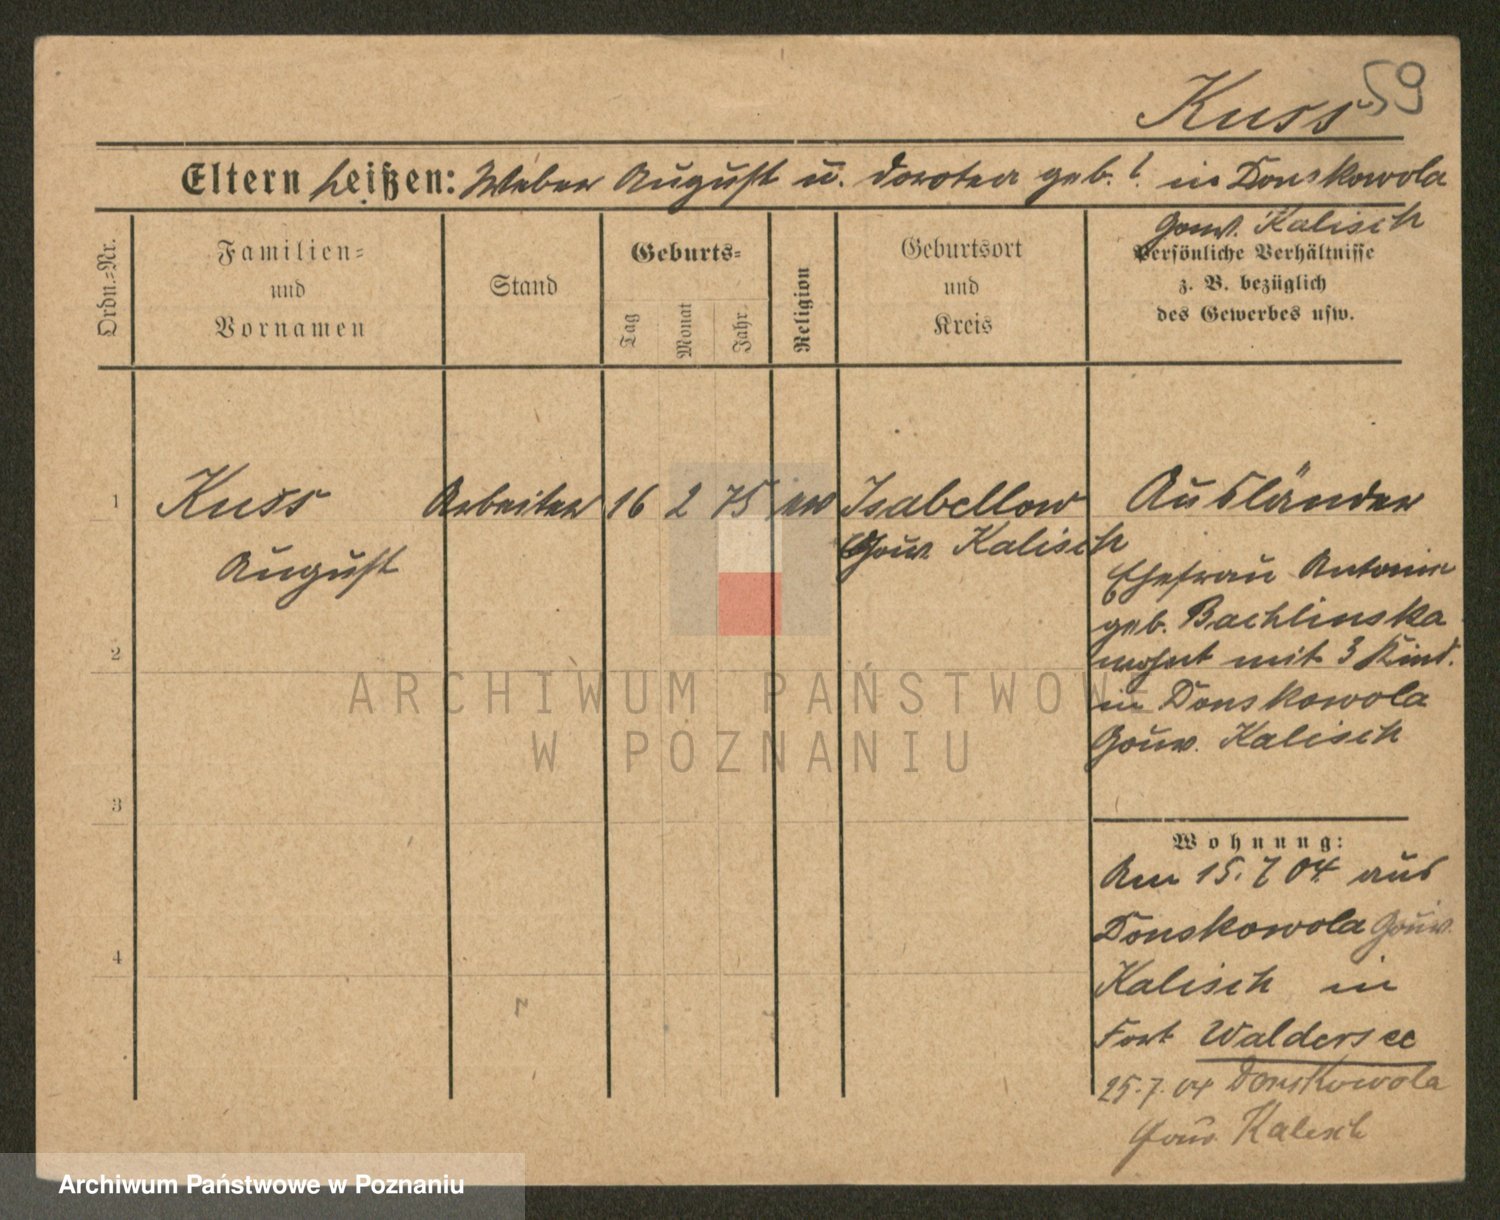 59
Kuss
Eltern heißen: Weber August u. Dorothea geb. ?. in Donskowola
Gouv. Kalisch
Ordn.=Nr.
Familien=
und
Vornamen
Stand
Geburts=
Tag
Monat
Jahr
Religion
Geburtsort
und
Kreis
Persönliche Verhältnisse
z. B. bezüglich
des Gewerbes usw.
1
Kuss
August
Arbeiter
16
2
75
ev
Isabellow
Gouv. Kalisch
Ausländer
Ehefrau Antonie
geb. Bachlinska
wohnt mit 3 Kind.
in Donskowola
Gouv. Kalisch
2
3
4
Wohnung:
Am 15.7 04 aus
Donskowola Gouv.
Kalisch in
Fort Waldersee
25.7.04 Donskowola
Gouv. Kalisch
ARCHIWUM PAŃSTWOWE
W POZNANIU
Archiwum Państwowe w Poznaniu